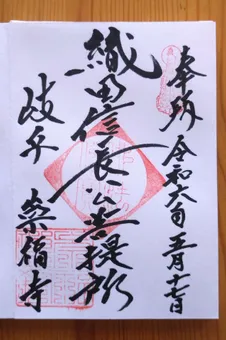 奉納 令和六年 五月十七日
織田信長公菩提所
岐阜 崇福寺